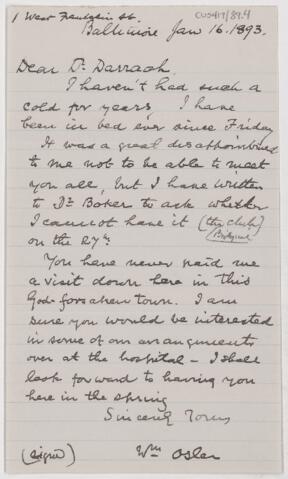 1 West Franklin St.
CUS417/89.4
Baltimore Jan 16. 1893.
Dear Dr Darrach,
I haven't had such a
cold for years. I have
been in bed ever since Friday
It was a great disappointment
to me not to be able to meet
you all, but I have written
to Dr Baker to ask whether
I cannot have it (the club)
Biological
on the 27th.
You have never paid me
a visit down here in this
God-forsaken town. I am
sure you would be interested
in some of our arrangements
over at the hospital - I shall
look forward to having you
here in the spring
Sincerely Yours
(signed) Wm Osler